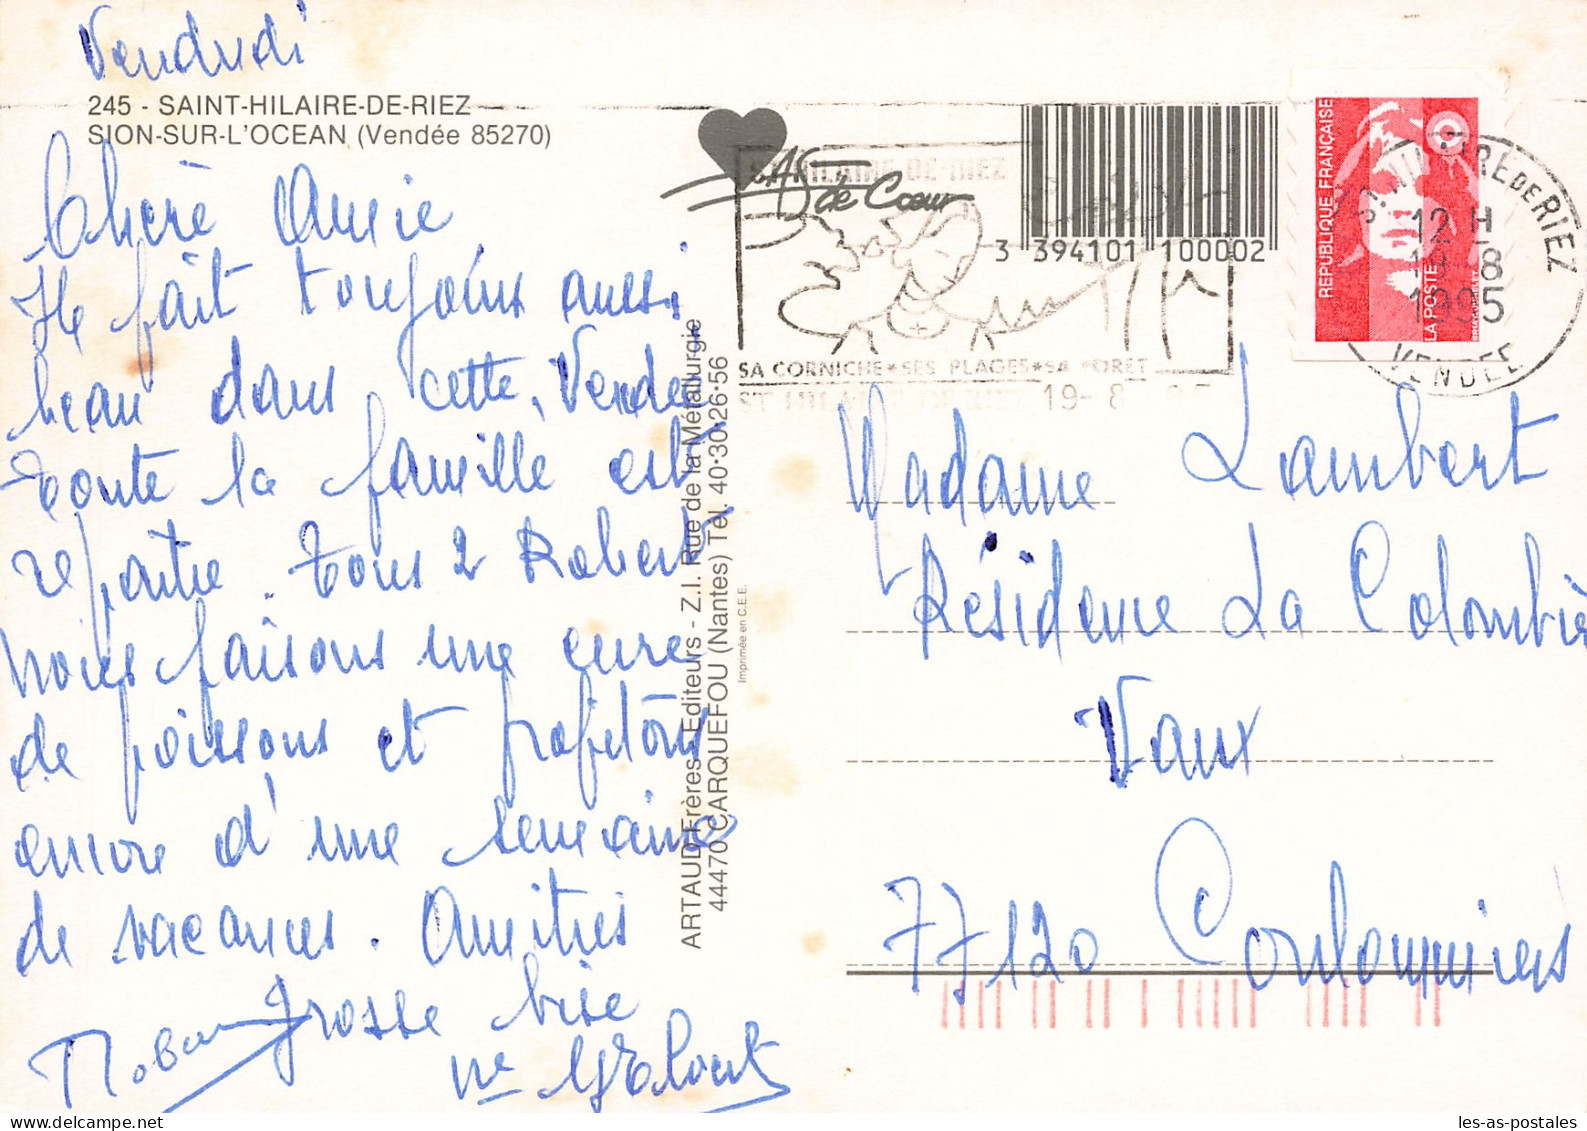 Vendredi
245 - SAINT-HILAIRE-DE-RIEZ
SION-SUR-L'OCEAN (Vendée 85270)
Chère Amie
Il fait toujours aussi
beau dans cette Vendée
toute la famille est
repartie. Tous 2 Robert
nous faisons une cure
de poissons et profitons
encore d'une semaine
de vacances. Amitiés
Grosse bise
ARTAUD Frères Editeurs - Z.I. Rue de la Métallurgie
44470 CARQUEFOU (Nantes) Tél. 40·30·26·56
Imprimée en C.E.E.
AS de Cœur
3 394101 100002
SA CORNICHE * SES PLAGES * SA FORET
19-8
REPUBLIQUE FRANÇAISE
LA POSTE
ST HILAIRE DE RIEZ
12 H
19-8
1995
VENDEE
Madame Lambert
Résidence La Colombiè
Vaux
77120 Coulommiers
les-as-postales